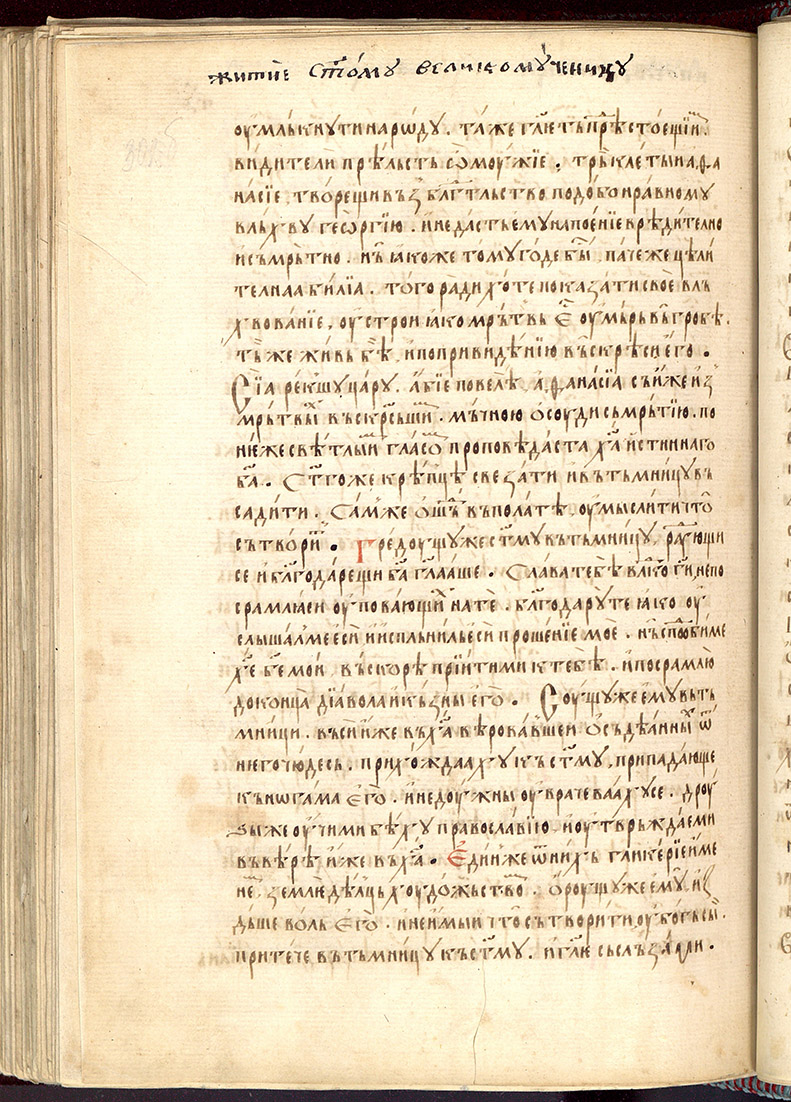 житїе ст҃омꙋ великомꙋченицꙋ
оумлькнꙋти нарѡдꙋ . таже гл҃ѥть прѣстоещїим .
видителїи прѣльсть ѡ моужїе , трьклетыи аѳа
насїе , творещи въз бл҃гтльство подобонравномꙋ
вльхвꙋ геѡргїю . и не дасть емꙋ напоенїе врѣдително
и съмрътно . нь ꙗкоже томꙋ годе бы , паче же цѣли
телнаа билїа . того ради хоте показати свое вль
хвованїе , оустрои ꙗко мрътвь е҃ оумрьвы гробѣ .
тъже живь бѣ , и по привидѣнїю въскрьсн его .
Сїа рекшꙋ царꙋ . абїе повелѣ , аѳанасїа съ иже из
мрътвых въскрьсьшим . мьчною осоуди съмрътїю . по
ниеже свѣтлыим гласом проповѣдаста х҃а истиннаго
б҃а . Ст҃гоже крѣпцѣ свезати и въ тьмницꙋ въ
садити . Самже ѡшьд въ полатѣ , оумыслити что
сътворит . Гредоущꙋ же ст҃мꙋ въ тьмницꙋ , радꙋющи
се и благодарещи б҃а гл҃ааше . Слава тебѣ вл҃ко г҃и , не по
срамлꙗѥи оуповающїих на те . благодарꙋ те ꙗко оу
слышал ме еси и испльниль еси прошенїе мое . и съпⷣоби ме
х҃е б҃е мои , въскорѣ прїити ми к тебѣ . и посрамлю
до конца дїавола и къзны его . Соущꙋ же емꙋ вь ть
мници . въси иже въ х҃а вѣровавшеи ѡ съдѣанных ѿ
него чюдесь . прихождаахꙋ къ ст҃мꙋ , припадающе
къ ногама его . и недоужны оуврачеваахꙋ се . дроу
зыже оучими бѣхꙋ православїю . и оутврьждаеми
въ вѣрѣ иже въ х҃а . Единже ѿ них гликерїе име
нем , землѣдѣлць хоудожьством . Ѡроущꙋ же емꙋ , из
дьше воль его . и не имыи что сътворити , оубогь сы .
притече въ тьмницꙋ къ ст҃мꙋ . и гл҃ѥ сь сльзами .